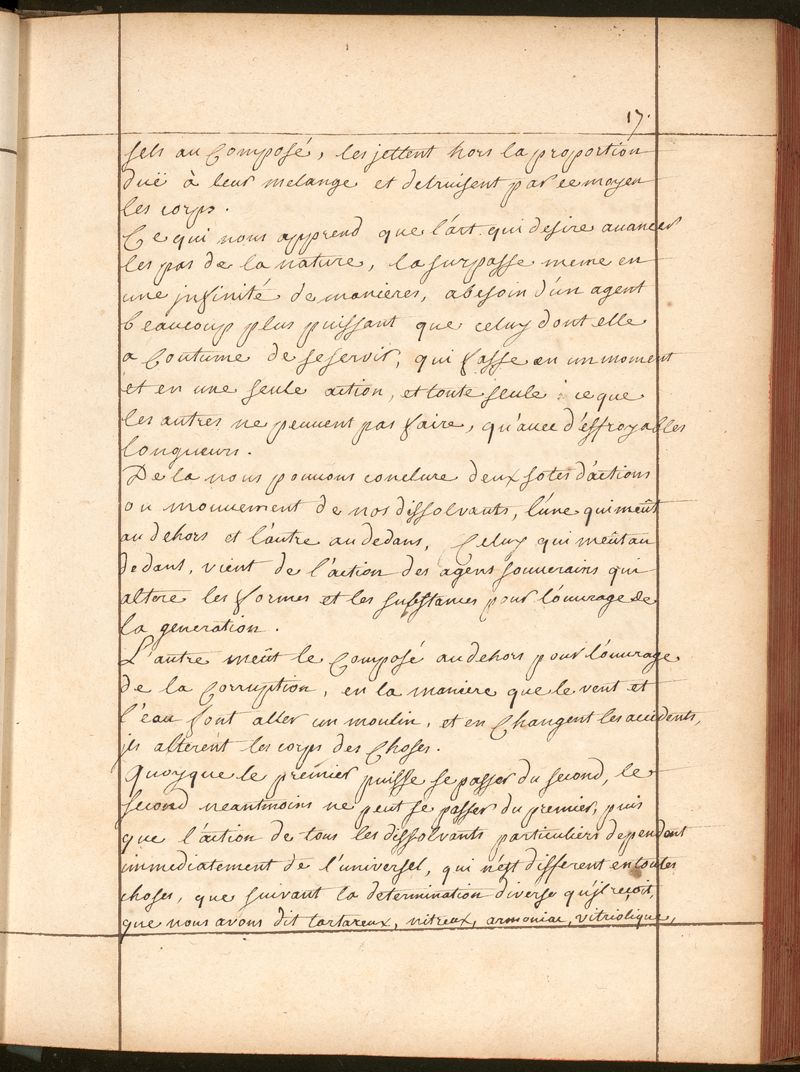 17.
sels au Composé, les jettent hors la proportion
duë à leur melange et detruisent par ce moyen
les corps.
Ce qui nous apprend que l'art qui desire auancer
les pas de la nature, la surpasse meme en
une jnfinité de manieres, a besoin d'un agent
beaucoup plus puissant que celuy dont elle
a Coutume de se servir, qui fasse en un moment
et en une seule action, et toute seule; ce que
les autres ne peuuent pas faire, qu'auec d'effroyables
longueurs.
De la nous pouuons conclure deux sotes d'actions
ou mouuement de nos dissolvants, l'une qui meût
au dehors et l'autre au dedans, Celuy qui meût au
dedans, vient de l'action des agens souuerains qui
altere les formes et les substances pour l'ouurage de
la generation.
L'autre meût le Composé au dehors pour l'ouurage
de la Corruption, en la maniere que le vent et
l'eau font aller un moulin, et en Changent les accidents,
jls alterent les corps des Choses.
Quoyque le premier puisse se passer du second, le
second neantmoins ne peut se passer du premier, puis
que l'action de tous les dissolvants particuliers dependent
immediatement de l'universel, qui n'est different en toutes
choses, que suivant la determination diverse qu'jl reçoit,
que nous avons dit tartareux, nitreux, armoniac, vitriolique,